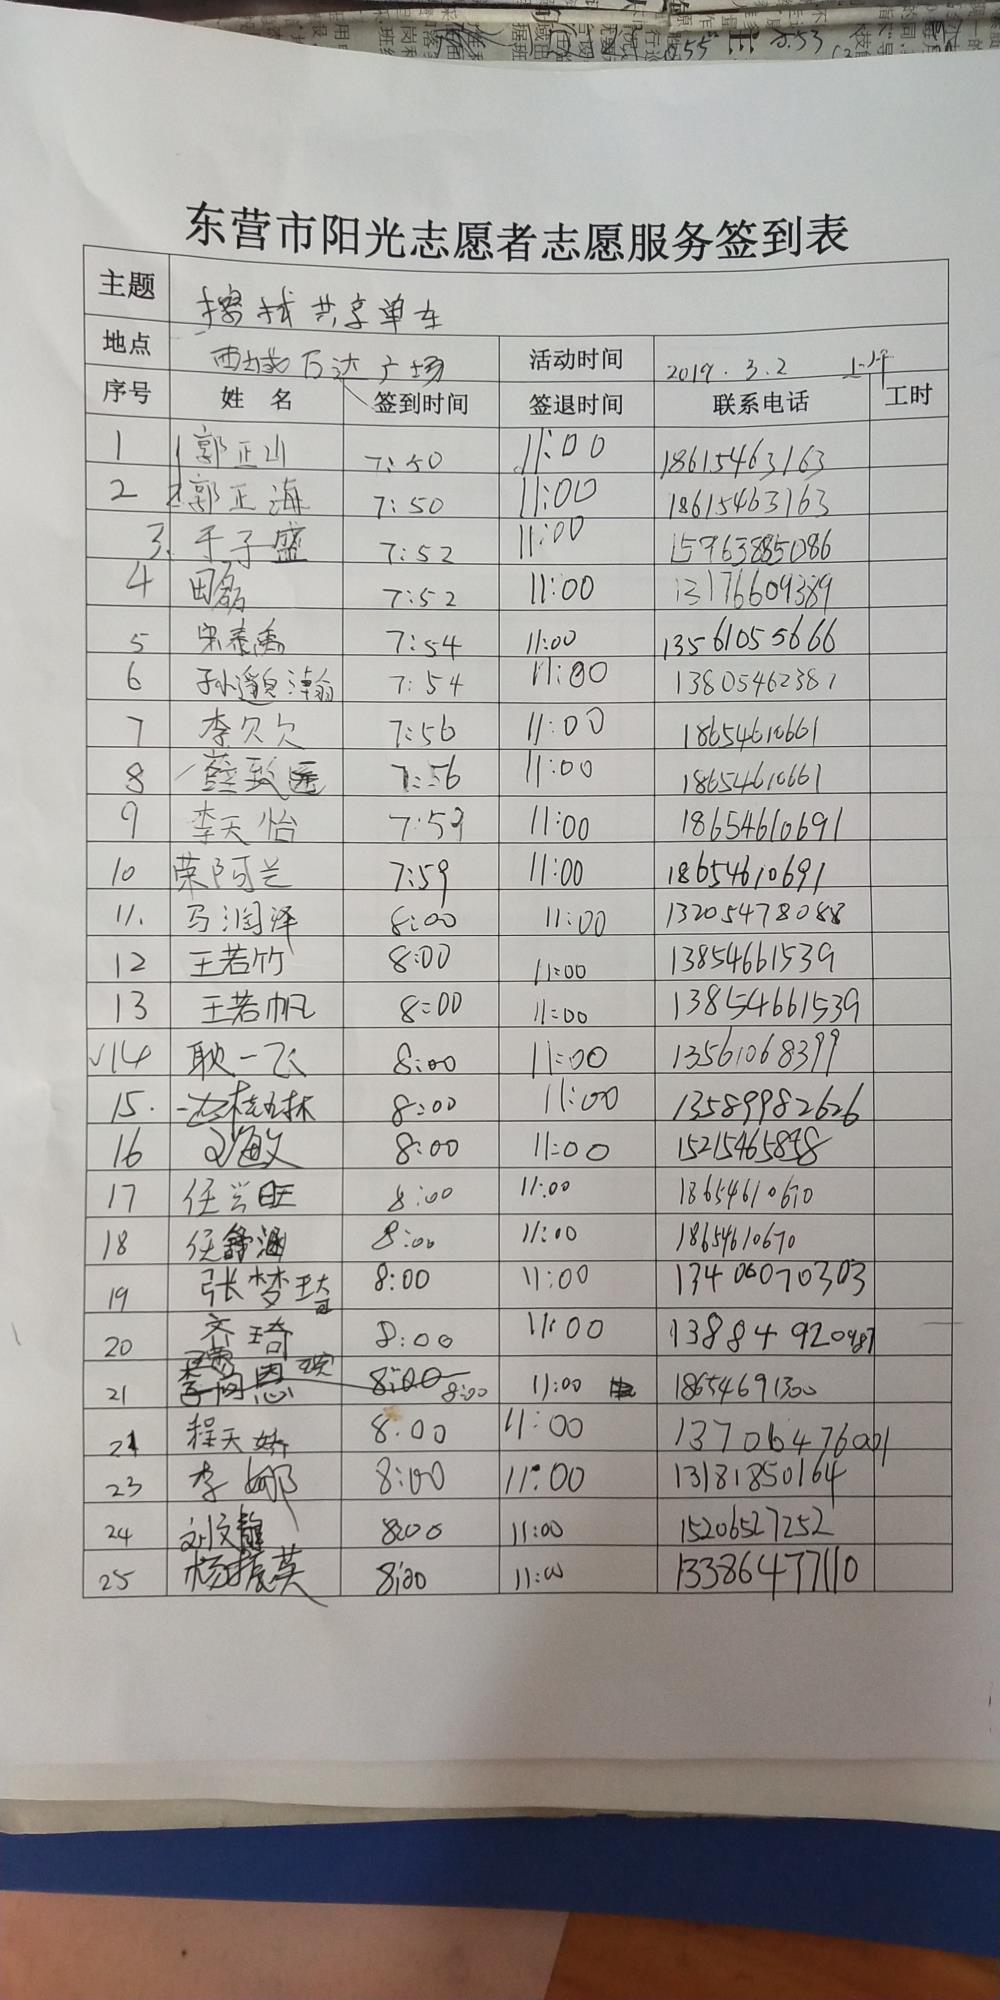 东营市阳光志愿者志愿服务签到表
主题 擦拭共享单车
地点 西城万达广场 活动时间 2019.3.2 上午
序号 姓名 签到时间 签退时间 联系电话 工时
1 郭正山 7:50 11:00 18615463163
2 郭正海 7:50 11:00 18615463163
3. 于子盛 7:52 11:00 15963885086
4 田磊 7:52 11:00 13176609389
5 宋泰禹 7:54 11:00 13561055666
6 孙邈瀚 7:54 11:00 13805462381
7 李欠欠 7:56 11:00 18654610661
8 7:56 11:00 18654610661
9 李天怡 7:59 11:00 18654610691
10 荣阿兰 7:59 11:00 18654610691
11. 马润泽 8:00 11:00 13205478088
12 王若竹 8:00 11:00 13854661539
13 王若帆 8:00 11:00 13854661539
√14 耿一飞 8:00 11:00 13561068399
15. 边桂林 8:00 11:00 13589982626
16 刘敏 8:00 11:00
17 任兴旺 8:00 11:00 18654610670
18 任舒涵 8:00 11:00 18654610670
19 张梦琦 8:00 11:00 13406070303
20 齐琦 8:00 11:00 13884920487
21 8:00 8:00 11:00 18654691300
21 程天娇 8:00 11:00 13706476001
23 李娜 8:00 11:00 13181850164
24 刘文静 8:00 11:00 15206527252
25 杨振英 8:00 11:00 13386477110